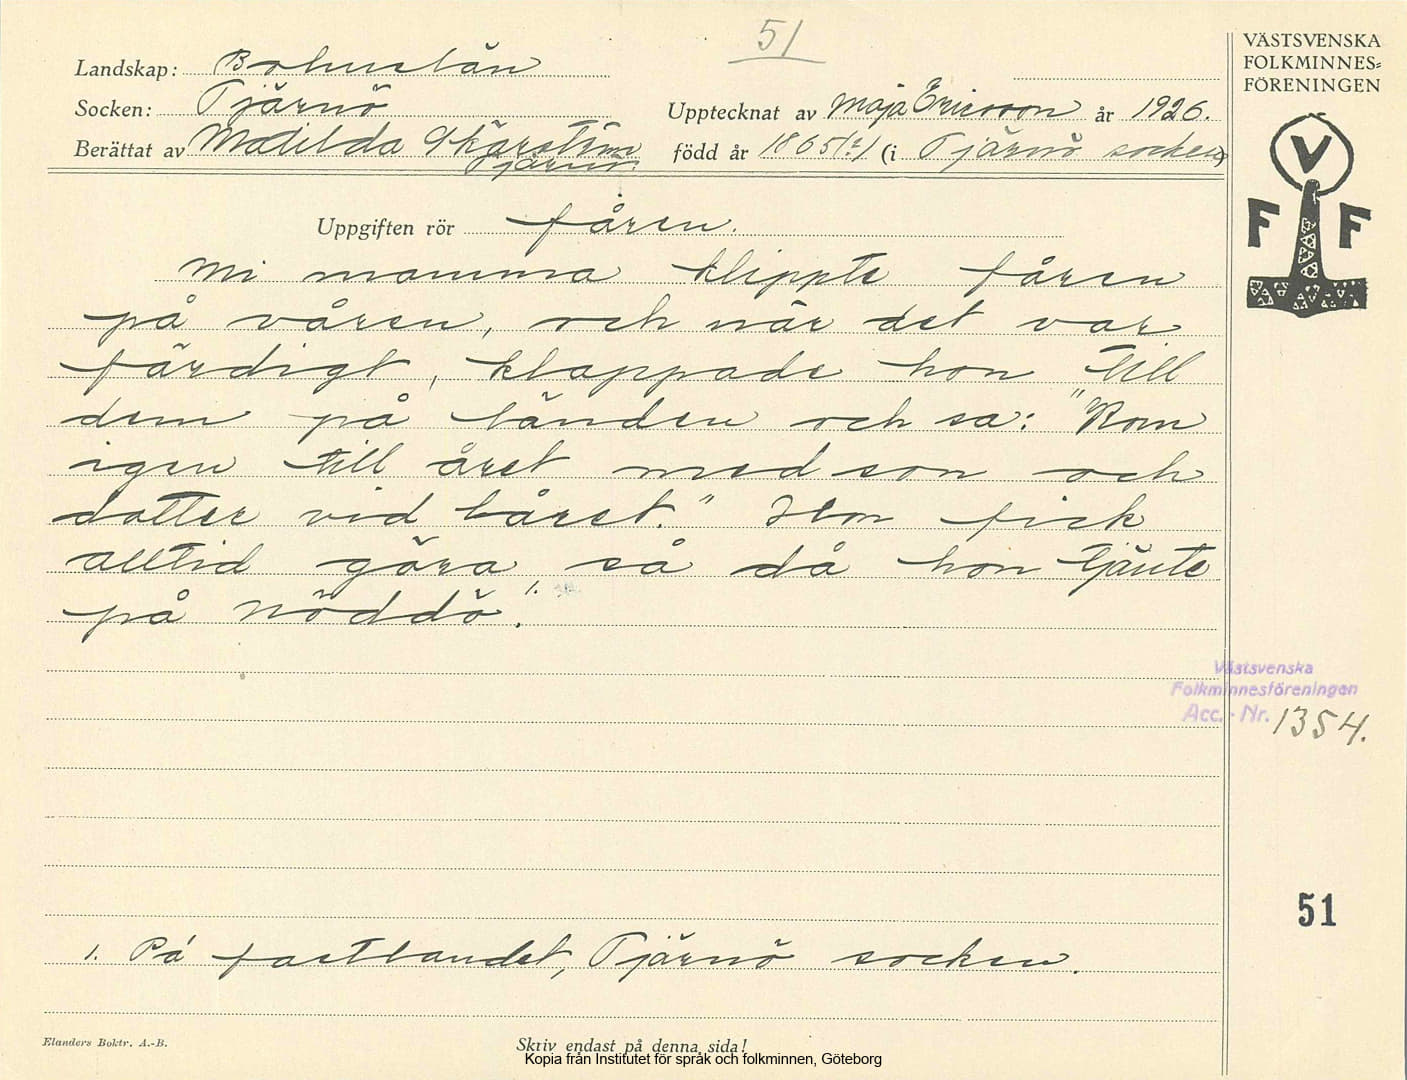 51
VÄSTSVENSKA
FOLKMINNES=
FÖRENINGEN
Landskap: Bohuslän
Socken: Tjärnö
Upptecknat av Maja Ericsson år 1926.
Berättat av Matilda Skärström
Tjärnö.
född år 1865(?) (i Tjärnö socken)
V
F F
Uppgiften rör fåren.
Mi mamma klippte fåren
på våren, och när det var
färdigt, klappade hon till
dem på länden och sa: "Kom
igen till året med son och
dotter vid låret." Hon fick
alltid göra så då hon tjänte
på Nöddö¹.
Västsvenska
Folkminnesföreningen
Acc. - Nr. 1354.
51
1. På fastlandet, Tjärnö socken.
Elanders Boktr. A.-B.
Skriv endast på denna sida!
Kopia från Institutet för språk och folkminnen, Göteborg